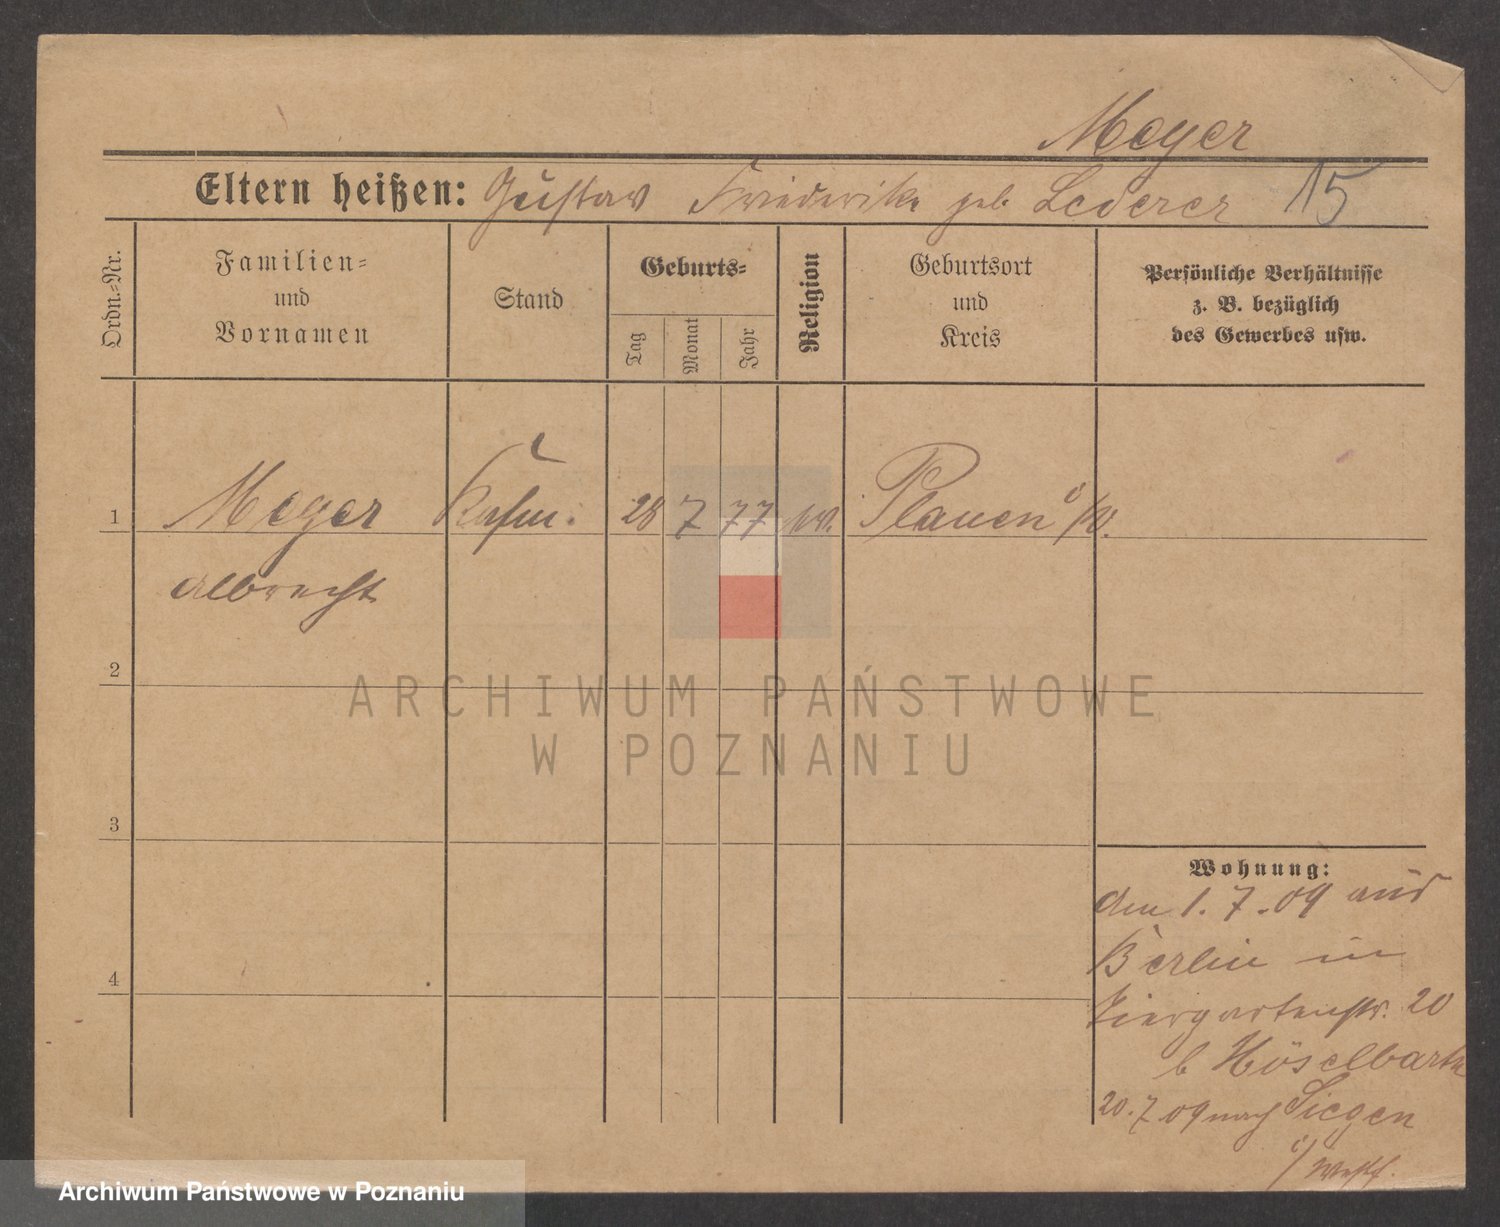 Meyer
Eltern heißen: Gustav Friederike geb. Lederer 15
Ordn.=Nr.
Familien=
und
Vornamen
Stand
Geburts=
Tag
Monat
Jahr
Religion
Geburtsort
und
Kreis
Persönliche Verhältnisse
z. B. bezüglich
des Gewerbes usw.
1 Meyer Kafm. 28 7 77 Plauen i/V.
Albrecht
2
3
4
Wohnung:
den 1. 7. 09 aus
Berlin in
Tiergartenstr. 20
b Höselbarth
20. 7 09 nach Siegen
i/ Westf.
ARCHIWUM PAŃSTWOWE
W POZNANIU
Archiwum Państwowe w Poznaniu